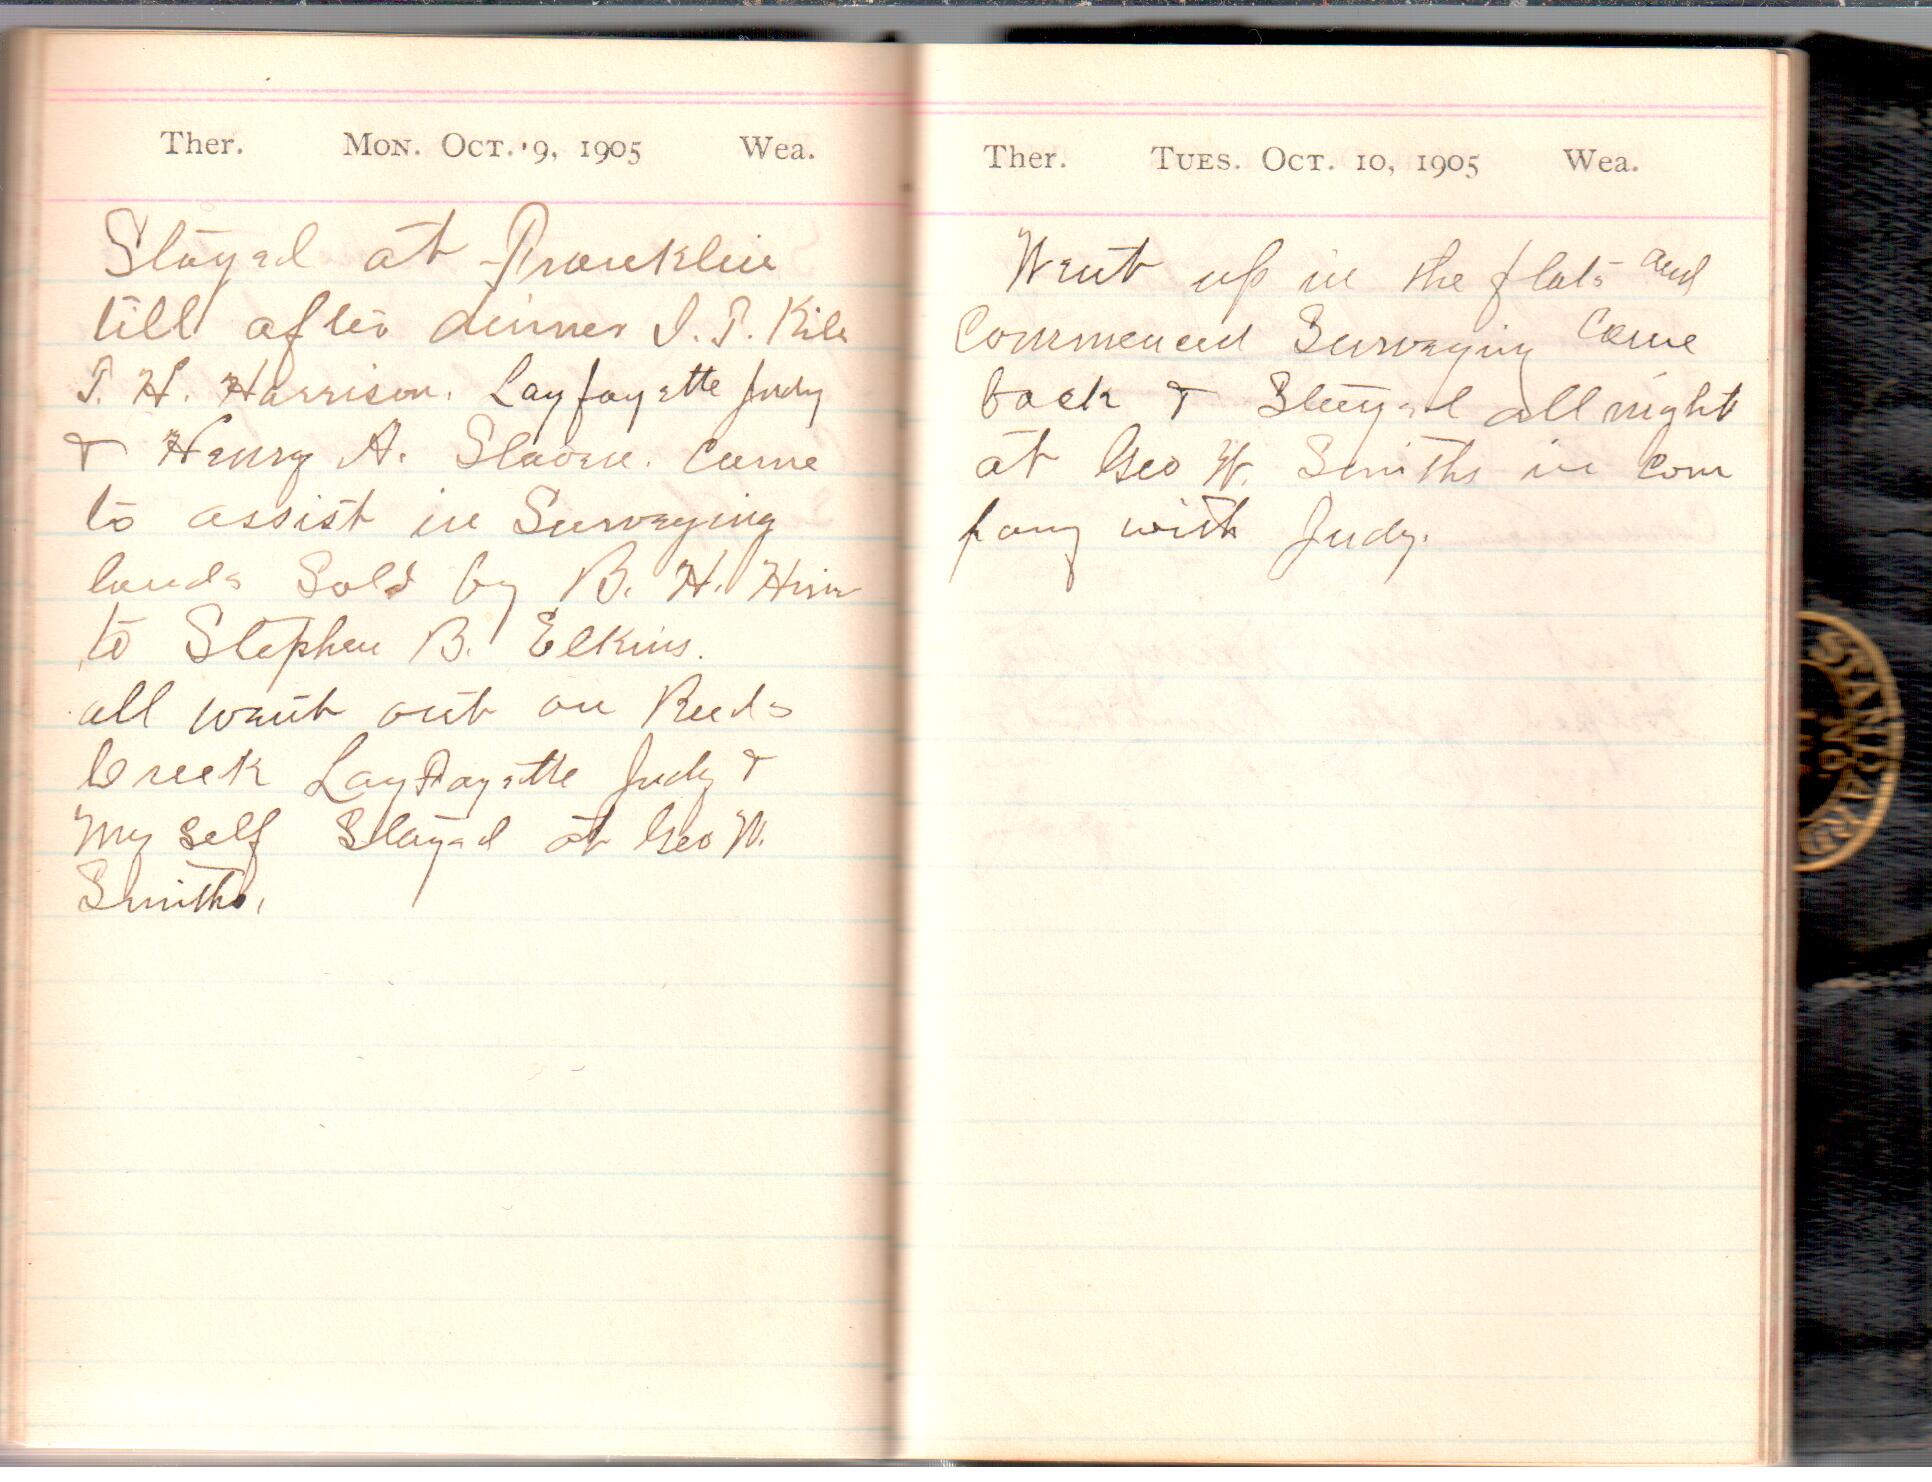 Ther. Mon. Oct. 9, 1905 Wea.
Stayed at Franklin
till after dinner I. T. Kile
T. H. Harrison. Layfayette Judy
& Henry A. Slaven. Came
to assist in Surveying
lands Sold by B. H. Hiner
to Stephen B. Elkins.
all went out on Reeds
Creek Layfayette Judy &
My self Stayed at Geo W.
Smiths.
Ther. Tues. Oct. 10, 1905 Wea.
Went up in the flats and
Commenced Surveying Came
back & Stayed all night
at Geo W. Smiths in com
pany with Judy.
STANDARD
NO.